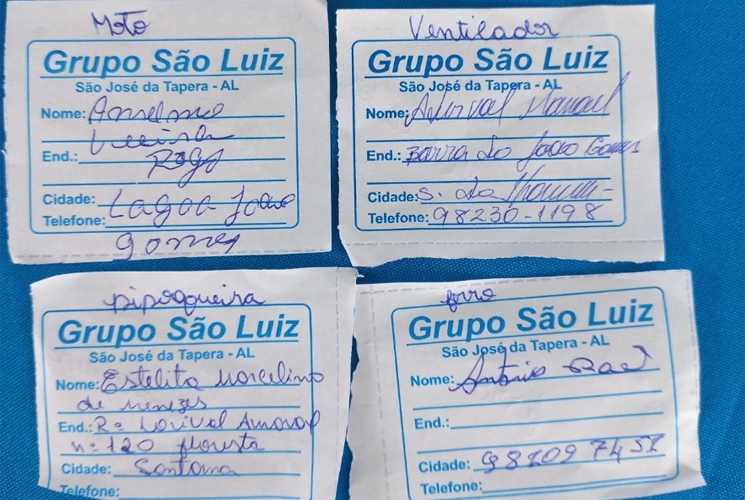 Moto
Grupo São Luiz
São José da Tapera - AL
Nome: Anselmo
Vieira
End.:
Cidade: Lagoa João
Telefone:
gomes
Ventilador
Grupo São Luiz
São José da Tapera - AL
Nome: Manoel
End.: Barra do João Gomes
Cidade: S. da
Telefone: 98230-1198
pipoqueira
Grupo São Luiz
São José da Tapera - AL
Nome: Estelita Marcelino
de menezes
End.: Rª Lorival Amaral
nº 120 floresta
Cidade: Santana
Telefone:
ferro
Grupo São Luiz
São José da Tapera - AL
Nome: Antônio
End.:
Cidade: 98109 7457
Telefone: